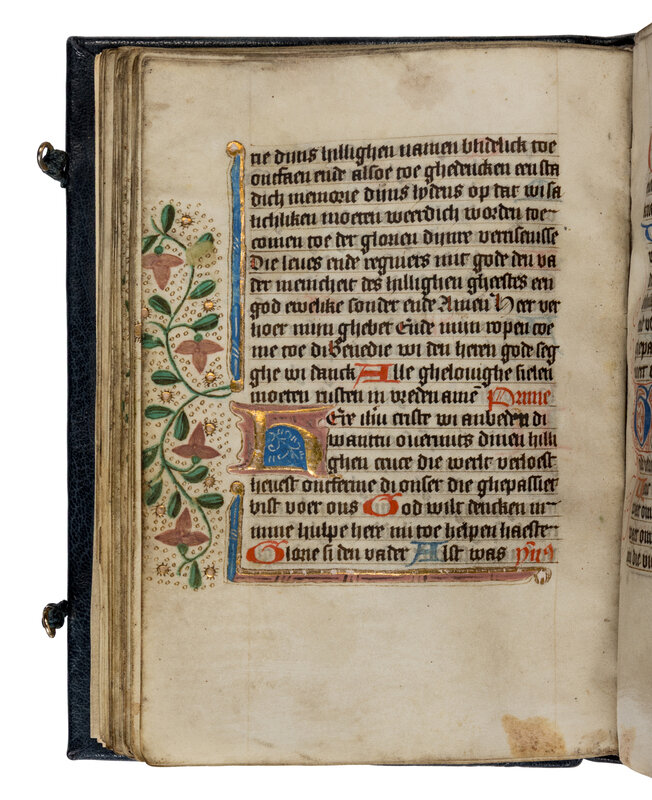 tie dijns hillighen namen blidelick toe
ontfaen ende alsoe toe ghedencken ernsta
dich memorie dijns lydens op dat wi sa
lichliken moeten weerdich worden toe
comen toe der glorien dijnre verrisenisse
Die leues ende regniers mit gode den va
der in enicheit des hillighen gheestes een
god ewelike sonder ende Amen Heer ver
hoer mijn ghebet Ende mijn ropen coe
me toe di Benedie wi den heren gode seg
ghe wi danck Alle ghelouighe sielen
moeten rusten in vreden amē Prime
Here ihū criste wi anbeden di
wanttu ouermits dinen hilli
ghen cruce die werlt verloest
heuest ontferme di onser die ghepassiet
bist voer ons God wilt dencken in
mine hulpe here mi toe helpen haeste
Glorie si den vader Alst was